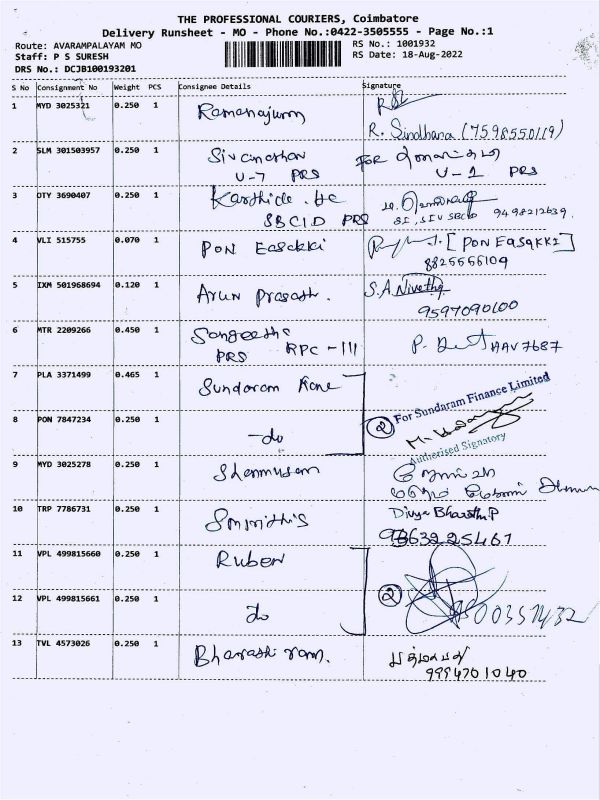 THE PROFESSIONAL COURIERS, Coimbatore
Delivery Runsheet - MO - Phone No.:0422-3505555 - Page No.:1
Route: AVARAMPALAYAM MO RS No.: 1001932
Staff: P S SURESH RS Date: 18-Aug-2022
DRS No.: DCJB100193201
S No Consignment No Weight PCS Consignee Details Signature
1 MYD 3025321 0.250 1 Ramanajum
R. Sindhana (7598550119)
2 SLM 301503957 0.250 1 Sivaneshan for
U-7 PRS U-1 PRS
3 OTY 3690407 0.250 1 Karthick
SBCID PRS SI, SIU SBCID 9498212639.
4 VLI 515755 0.070 1 PON Easakki [PON EASAKKI]
8825556109
5 IXM 501968694 0.120 1 Arun Prasath. S.A. Nivetha
9597090100
6 MTR 2209266 0.450 1 Sangeetha
PRS RPC-III P. HAV7687
7 PLA 3371499 0.465 1 Sundaram
For Sundaram Finance Limited
8 PON 7847234 0.250 1 -do 2
Authorised Signatory
9 MYD 3025278 0.250 1 Shanmugam
10 TRP 7786731 0.250 1 Smrithi's Divya Bharathi P
9863225467
11 VPL 499815660 0.250 1 Ruben
12 VPL 499815661 0.250 1 do 2
13 TVL 4573026 0.250 1 Bharathi ram. பத்மாவதி
9994701040